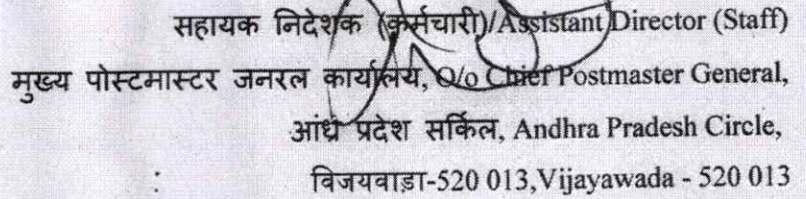 सहायक निदेशक (कर्मचारी)/Assistant Director (Staff)
मुख्य पोस्टमास्टर जनरल कार्यालय, O/o Chief Postmaster General,
आंध्र प्रदेश सर्किल, Andhra Pradesh Circle,
विजयवाड़ा-520 013,Vijayawada - 520 013